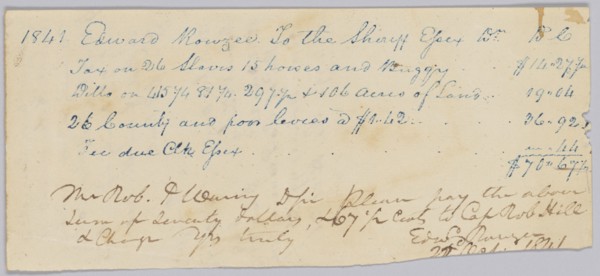 1841 Edward Rowzee To the Sheriff Essex Dr. D C
Tax on 26 Slaves 15 horses and Buggy .. $14-27½
Ditto on 457¼ 81¼. 297½ & 106 acres of Land .. 19-04
26 County and poor levies @ $1.42 .. 36-92
Fee due Clk Essex .. 44
$70-67½
Mr Rob. P Waring D Sir Please pay the above
Sum of Seventy dollars, & 67½ Cents to Cap Rob Hill
& Charge Yrs truly Edwd Rowzee
1841